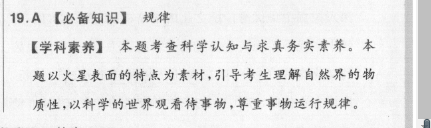 19.A 【必备知识】 规律
【学科素养】 本题考查科学认知与求真务实素养。本
题以火星表面的特点为素材,引导考生理解自然界的物
质性,以科学的世界观看待事物,尊重事物运行规律。